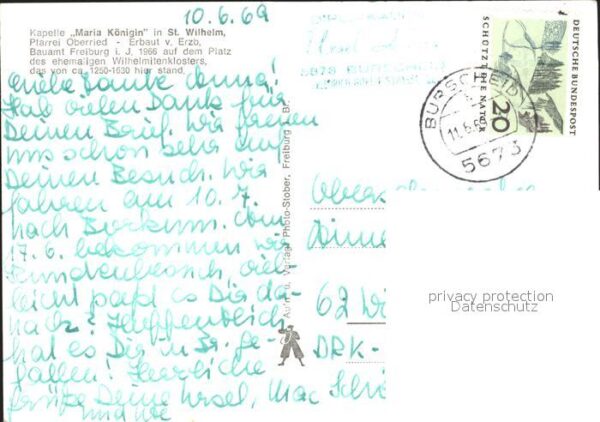 10.6.69
Kapelle „Maria Königin" in St. Wilhelm,
Pfarrei Oberried - Erbaut v. Erzb.
Bauamt Freiburg i. J. 1966 auf dem Platz
des ehemaligen Wilhelmitenklosters,
das von ca. 1250-1630 hier stand.
Liebe Tante Anna!
Hab vielen Dank für
Deinen Brief. Wir freuen
uns schon sehr auf
Deinen Besuch. Wir
fahren am 10.7.
nach Borkum. Am
17.6. bekommen wir
Kundenbesuch, viel-
leicht paßt es Dir da-
nach? Hoffentlich
hat es Dir in Br. ge-
fallen! Herzliche
Grüße Deine Ursel, Mac
und
Aufn. u. Verlag Photo-Stober, Freiburg i. Br.
5673 BURSCHEID
DEUTSCHE BUNDESPOST
SCHÜTZT DIE NATUR
20
BURSCHEID
11.6.
5673
62
DRK-
privacy protection
Datenschutz